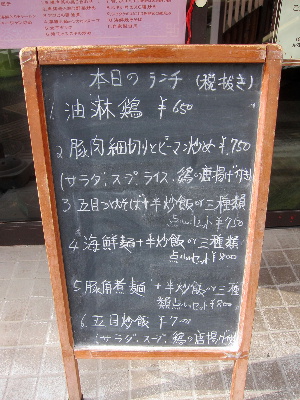 本日のランチ (税抜き)
1. 油淋鶏 ¥650
2. 豚肉細切りとピーマン炒め ¥750
(サラダ、スープ、ライス、鶏の唐揚げ付き)
3 五目つゆそば+半炒飯or三種類
点心セット ¥750
4. 海鮮麺+半炒飯or三種類
点心セット ¥800
5. 豚角煮麺 +半炒飯or三種
類点心セット ¥800
6. 五目炒飯 ¥700
(サラダ、スープ、鶏の唐揚げ付